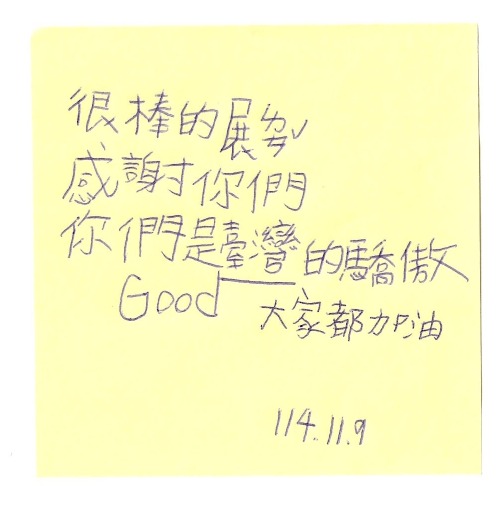 很棒的展ㄌㄢˇ
感謝你們
你們是臺灣的驕傲
Good
大家都加油
114.11.9